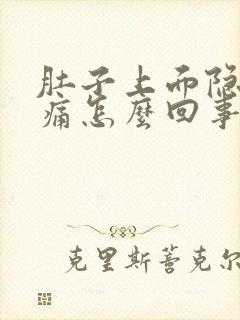 肚子上而隐
痛怎麼回事
克里斯蒈克尔